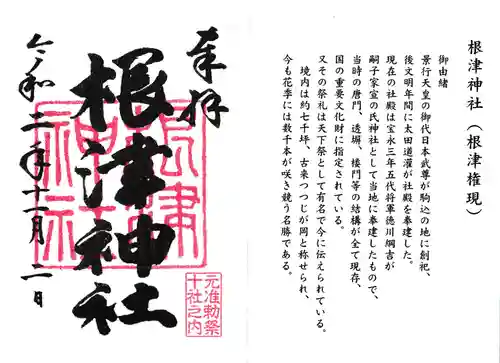 根津神社（根津権現）
御由緒
景行天皇の御代日本武尊が駒込の地に創祀、
後文明年間に太田道灌が社殿を奉建した。
現在の社殿は宝永三年五代将軍徳川綱吉が
嗣子家宣の氏神社として当地に奉建したもので、
当時の唐門、透塀、楼門等の結構が全て現存、
国の重要文化財に指定されている。
又その祭礼は天下祭として有名で今に伝えられている。
境内は約七千坪、古来つつじが岡と称せられ、
今も花季には数千本が咲き競う名勝である。
奉拝
根津神社
根津神社
元准勅祭
十社之内
令和二年十一月二日